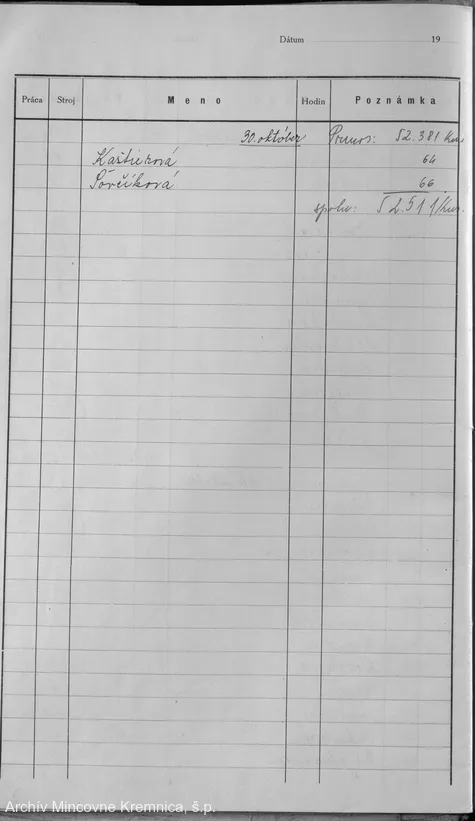 Dátum 19
Práca Stroj Meno Hodin Poznámka
30. október Prenos: 52.381 Kus
Kaštierová 64
Šovčíková 66
spolu: 52.511/Kus.
Archív Mincovne Kremnica, š.p.